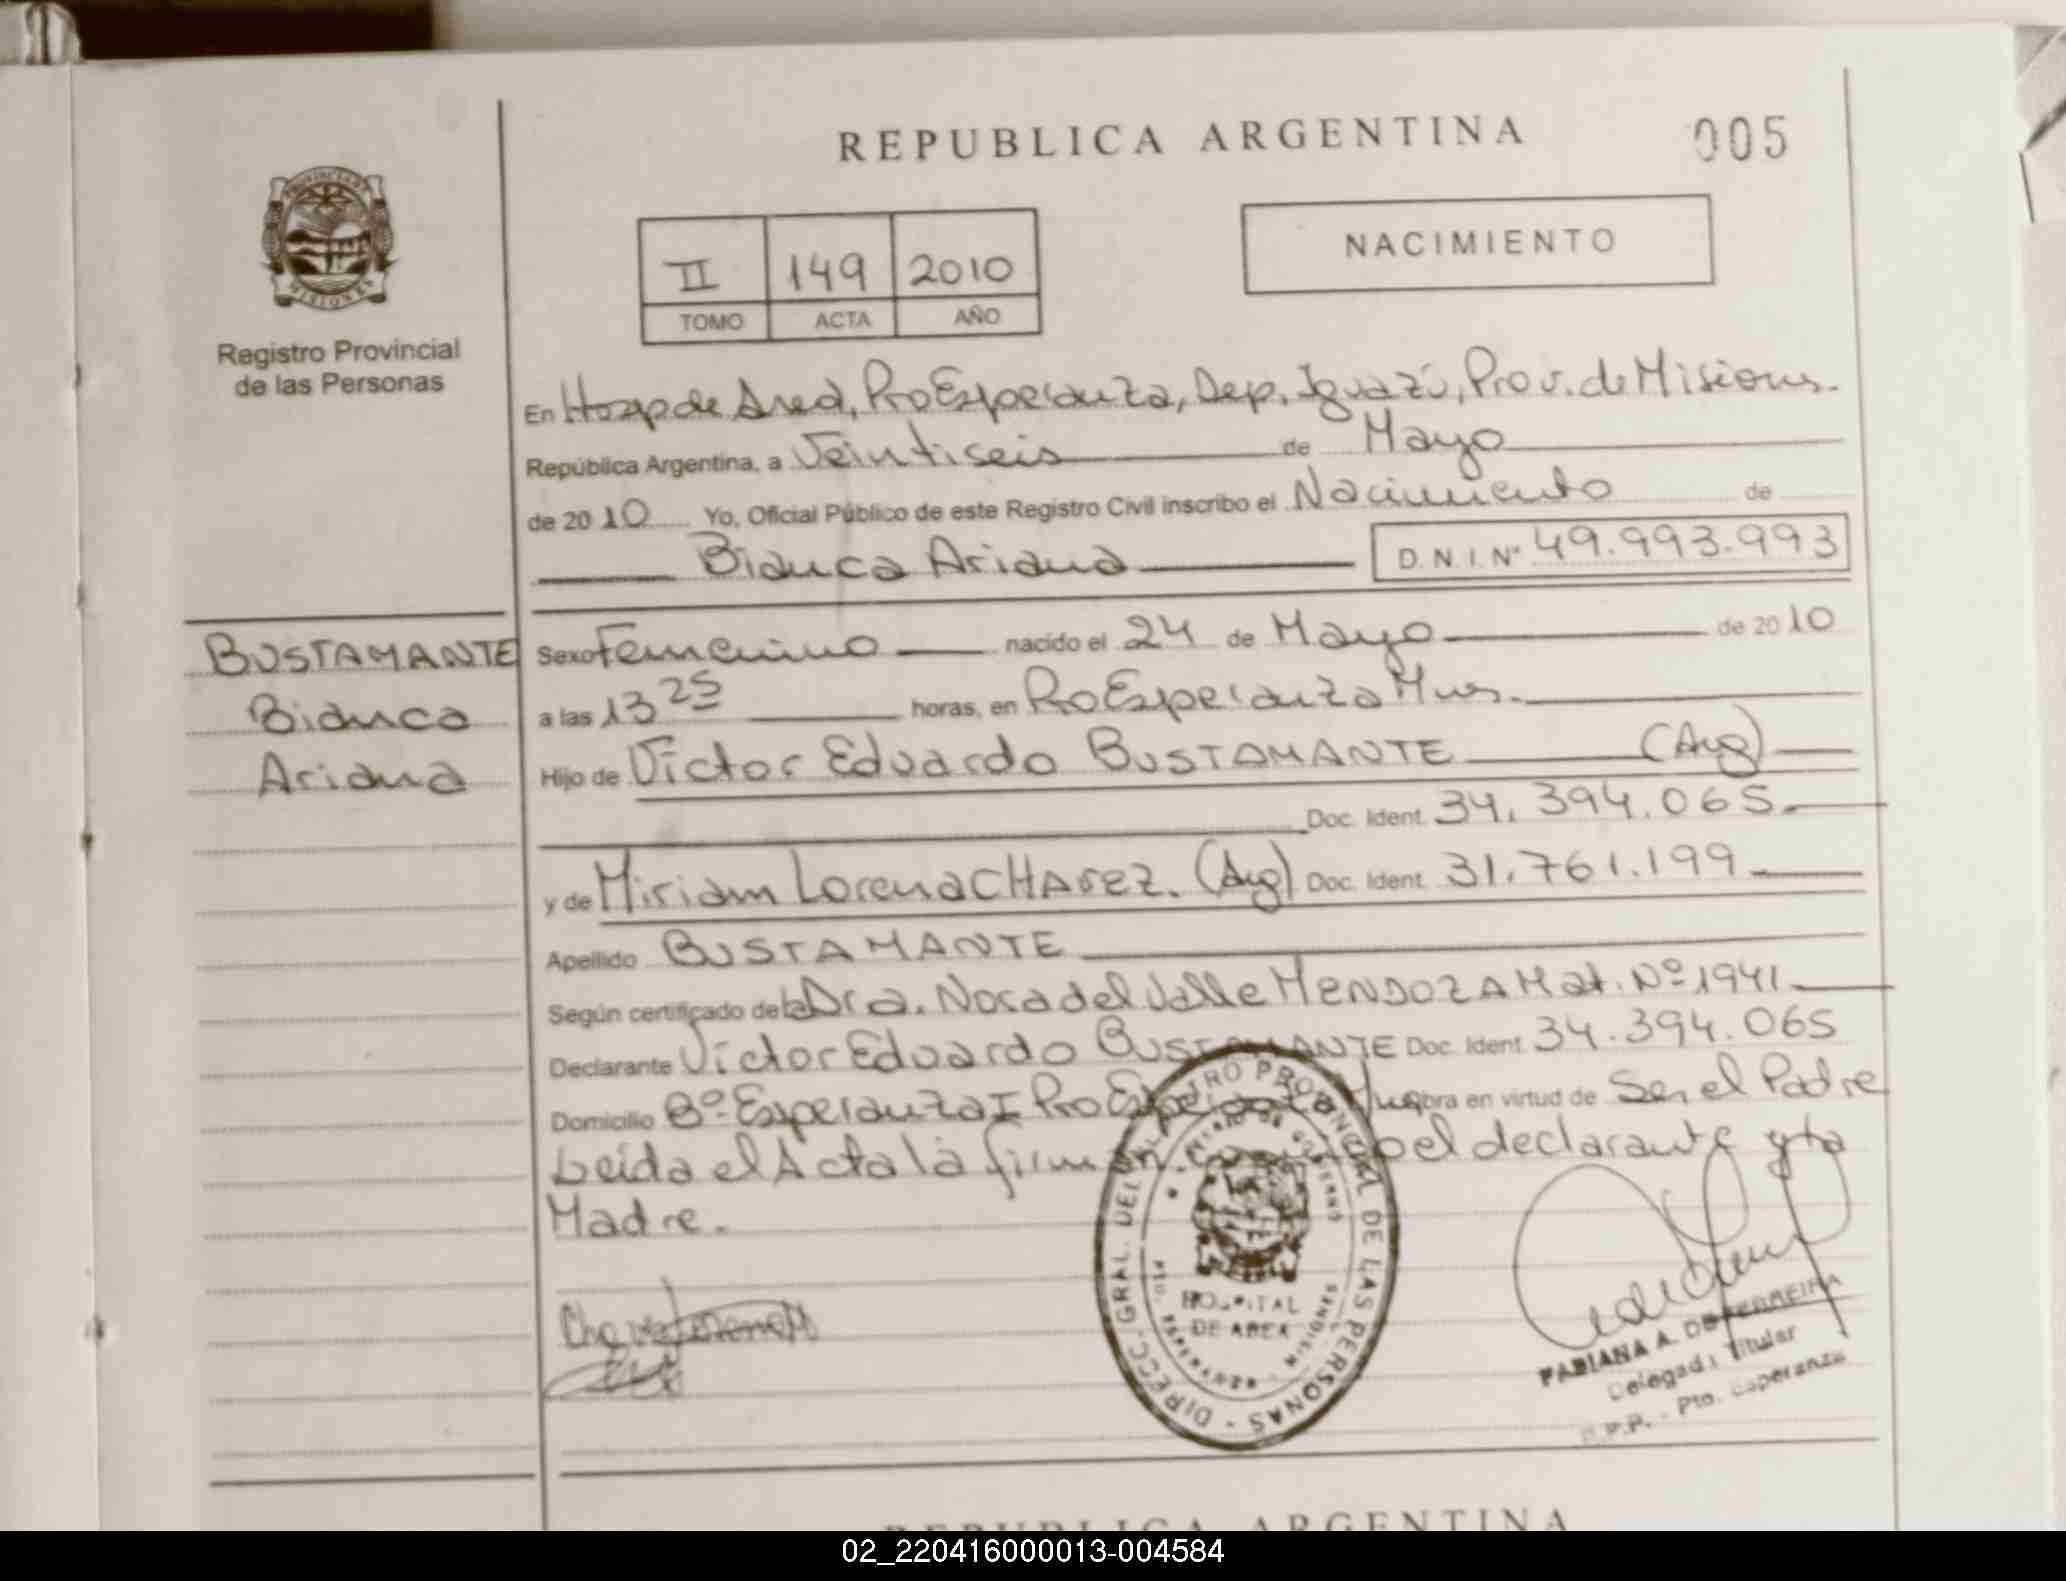 REPUBLICA ARGENTINA
005
PROVINCIA DE
MISIONES
Registro Provincial
de las Personas
II 149 2010
TOMO ACTA AÑO
NACIMIENTO
En Hosp de Area, PtoEsperanza, Dep. Iguazú, Prov. de Misiones.
República Argentina, a Veintiseis de Mayo
de 2010 Yo, Oficial Público de este Registro Civil inscribo el Nacimiento de
Bianca Ariana D.N.I. Nº 49.993.993
BUSTAMANTE
Bianca
Ariana
Sexo Femenino nacido el 24 de Mayo de 2010
a las 13 25 horas, en PtoEsperanza Mnes.
Hijo de Victor Eduardo BUSTAMANTE (Arg)
Doc. Ident. 34.394.065.
y de Miriam Lorena CHAVEZ. (Arg) Doc. Ident. 31.761.199
Apellido BUSTAMANTE
Según certificado de la Dra. Nora del Valle MENDOZA Mat. Nº 1941
Declarante Victor Eduardo BUSTAMANTE Doc. Ident. 34.394.065
Domicilio Bº Esperanza I Pto Esperanza Mnes Obra en virtud de Ser el Padre
Leida el Acta la firman conmigo el declarante y la
Madre.
DIRECC. GRAL. DEL REGISTRO PROVINCIAL DE LAS PERSONAS
HOSPITAL
DE AREA
FABIANA A. DE FERREIRA
Delegada Titular
R.P.P. - Pto. Esperanza
REPUBLICA ARGENTINA
02_220416000013-004584